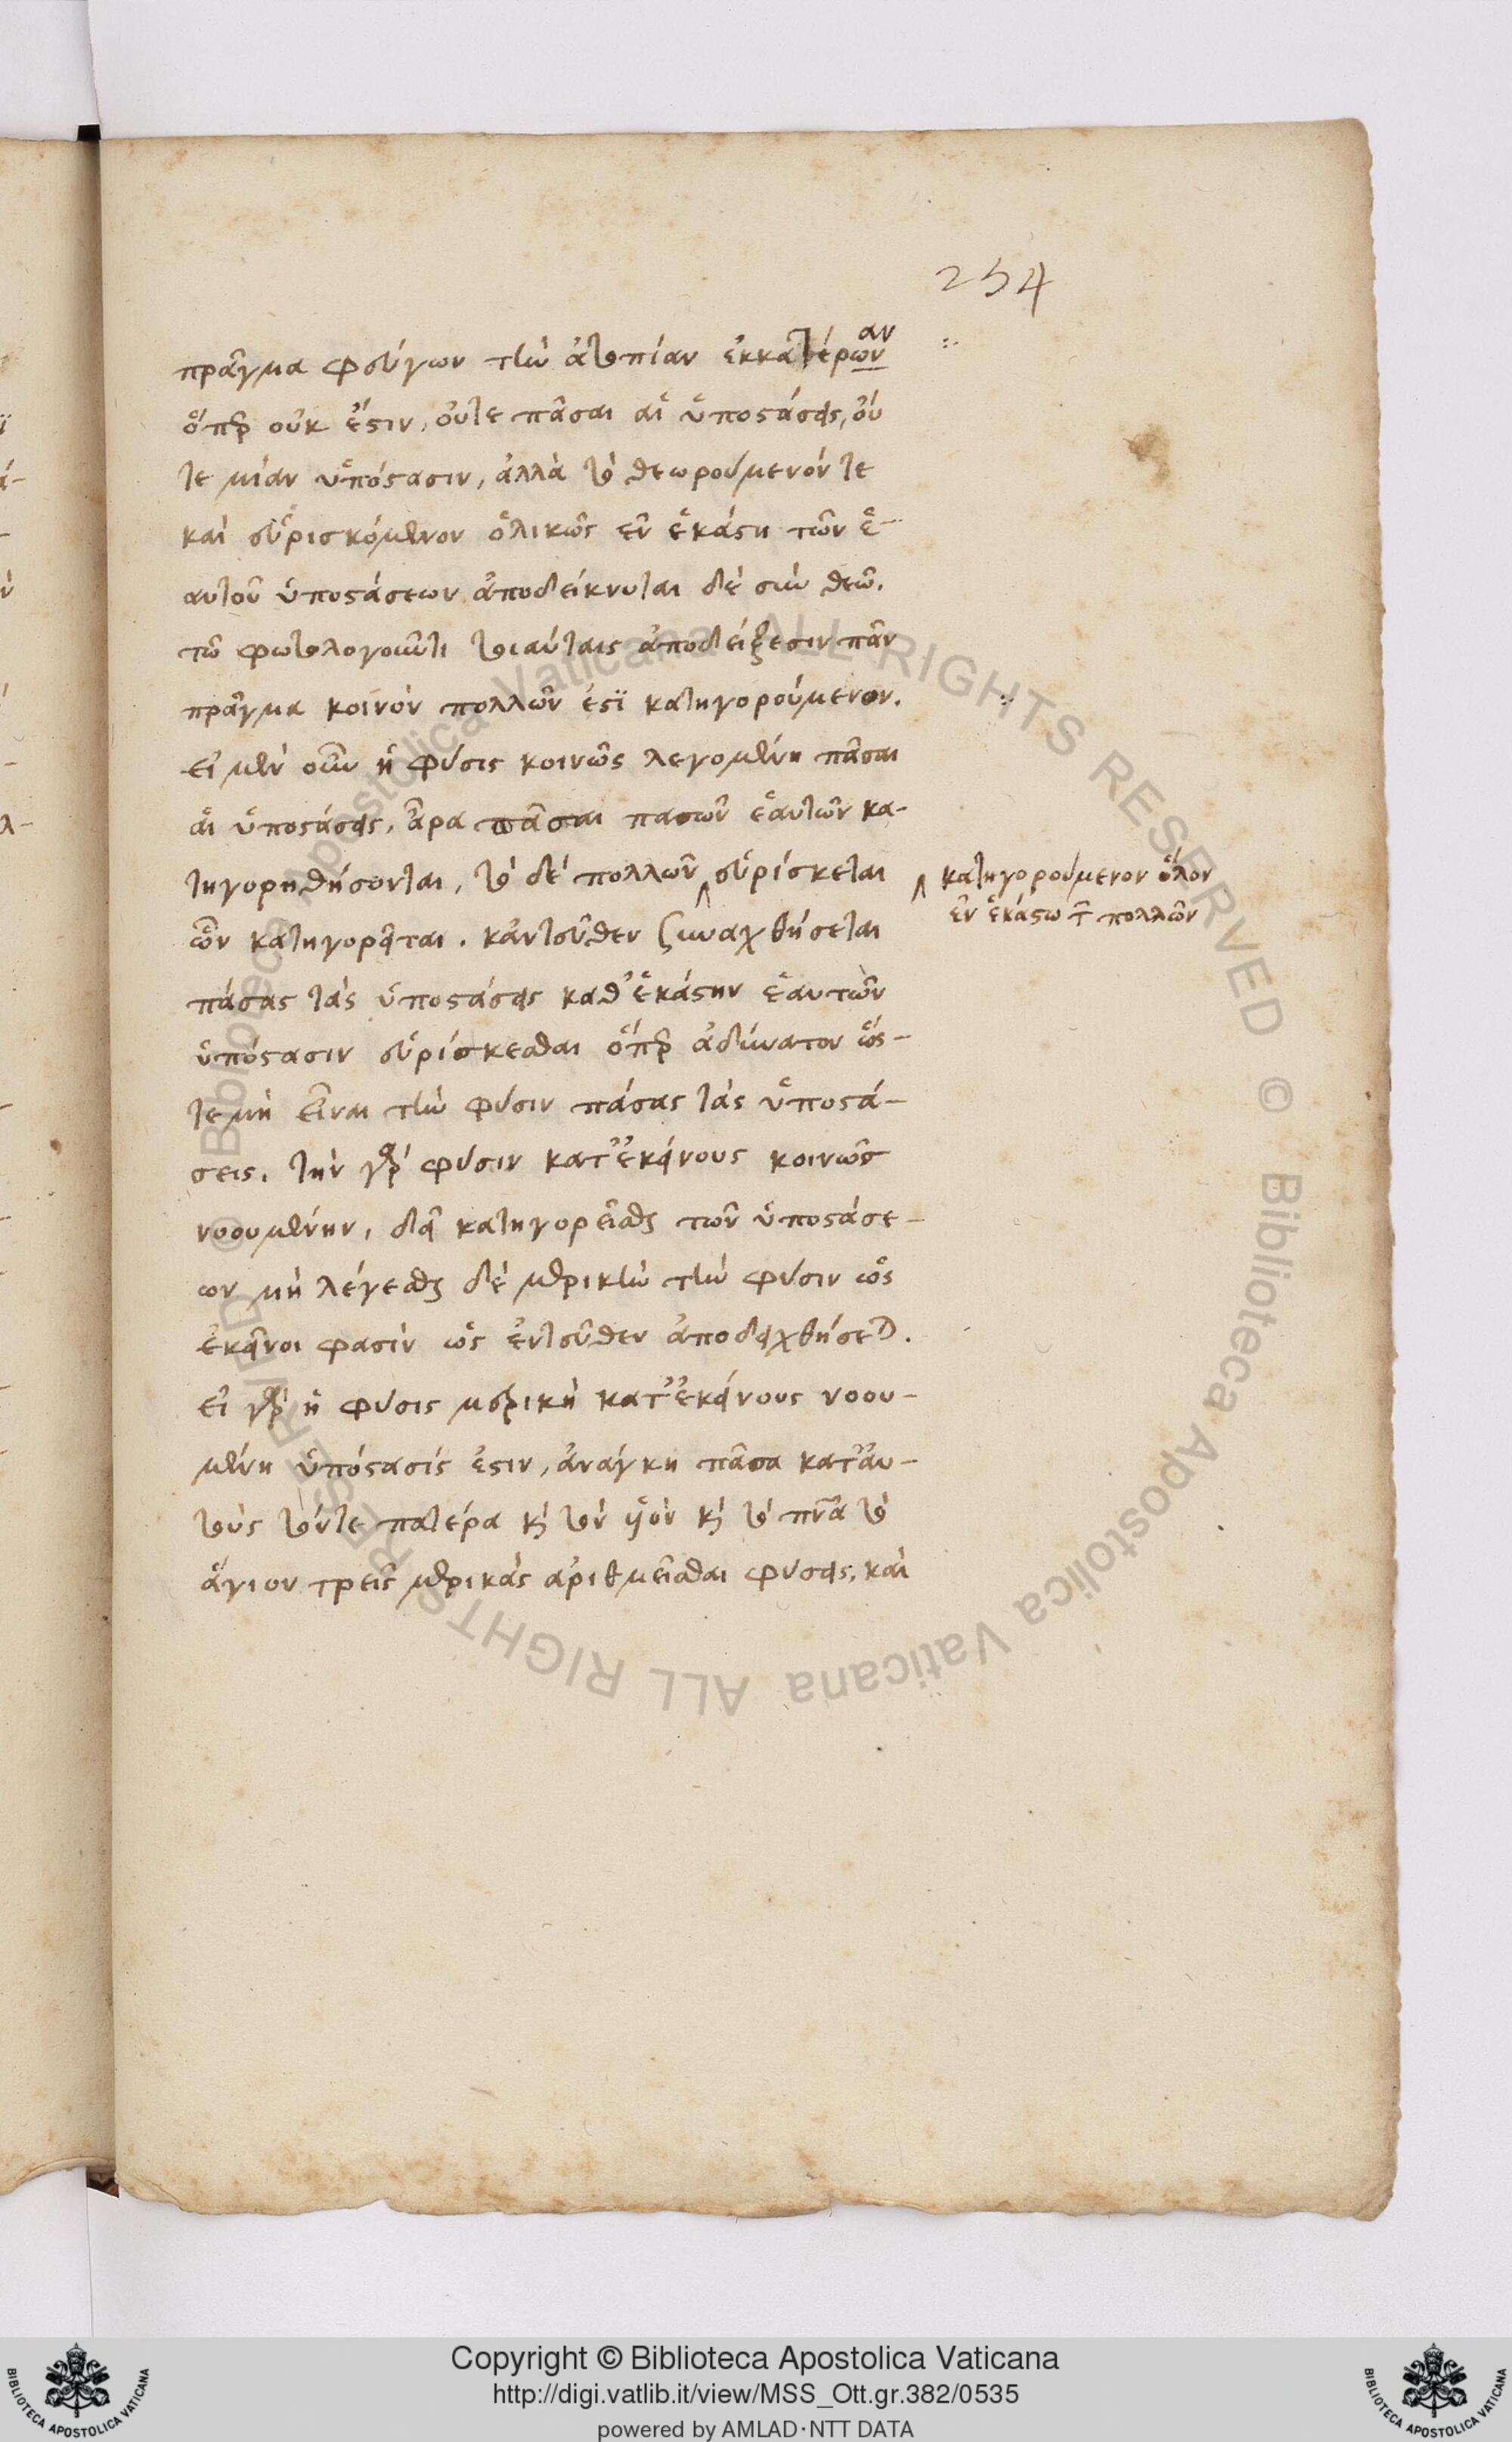 254
πρᾶγμα φεύγων τὴν ἀτοπίαν ἑκκατέρων αν :·
ὅπερ οὐκ ἔστιν, οὔτε πᾶσαι αἱ ὑποστάσεις, οὔ
τε μίαν ὑπόστασιν, ἀλλὰ τὸ θεωρούμενόν τε
καὶ εὑρισκόμενον ὁλικῶς ἐν ἑκάστη τῶν ἑ-
αυτοῦ ὑποστάσεων ἀποδείκνυται δὲ σὺν θεῶ.
τῶ φωτολογοῦντι τοιαύταις ἀποδείξεσιν πᾶν
πρᾶγμα κοινὸν πολλῶν ἐστὶ κατηγορούμενον. :·
εἰ μὲν οὖν ἡ φύσις κοινῶς λεγομένη πᾶσαι
αἱ ὑποστάσεις, ἆρα πᾶσαι πασῶν ἑαυτῶν κα-
τηγορηθήσονται, τὸ δὲ πολλῶν ⸌ εὑρίσκεται ⸌ κατηγορούμενον ὅλον
ἐν ἑκάστω τῶν πολλῶν
ὧν κατηγορεῖται. κἀντεῦθεν συναχθήσεται
πάσας τὰς ὑποστάσεις καθ' ἑκάστην ἑαυτῶν
ὑπόστασιν εὑρίσκεσθαι ὅπερ ἀδύνατον ὥσ-
τε μὴ εἶναι τὴν φύσιν πάσας τὰς ὑποστά-
σεις. τὴν γὰρ φύσιν κατ' ἐκείνους κοινῶς
νοουμένην, δεῖ κατηγορεῖσθαι τῶν ὑποστάσε-
ων μὴ λέγεσθαι δὲ μερικὴν τὴν φύσιν ὡς
ἐκεῖνοι φασὶν ὡς ἐντεῦθεν ἀποδειχθήσεται.
εἰ γὰρ ἡ φύσις μερικὴ κατ' ἐκείνους νοου-
μένη ὑπόστασίς ἐστιν, ἀνάγκη πᾶσα κατ' αὐ-
τοὺς τόν τε πατέρα καὶ τὸν υἱὸν καὶ τὸ πνᾶ τὸ
ἅγιον τρεῖς μερικὰς ἀριθμεῖσθαι φύσεις, καὶ
Copyright © Biblioteca Apostolica Vaticana
http://digi.vatlib.it/view/MSS_Ott.gr.382/0535
powered by AMLAD·NTT DATA